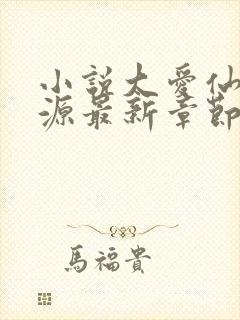 小說太愛仙
源最新章節
馬福貴